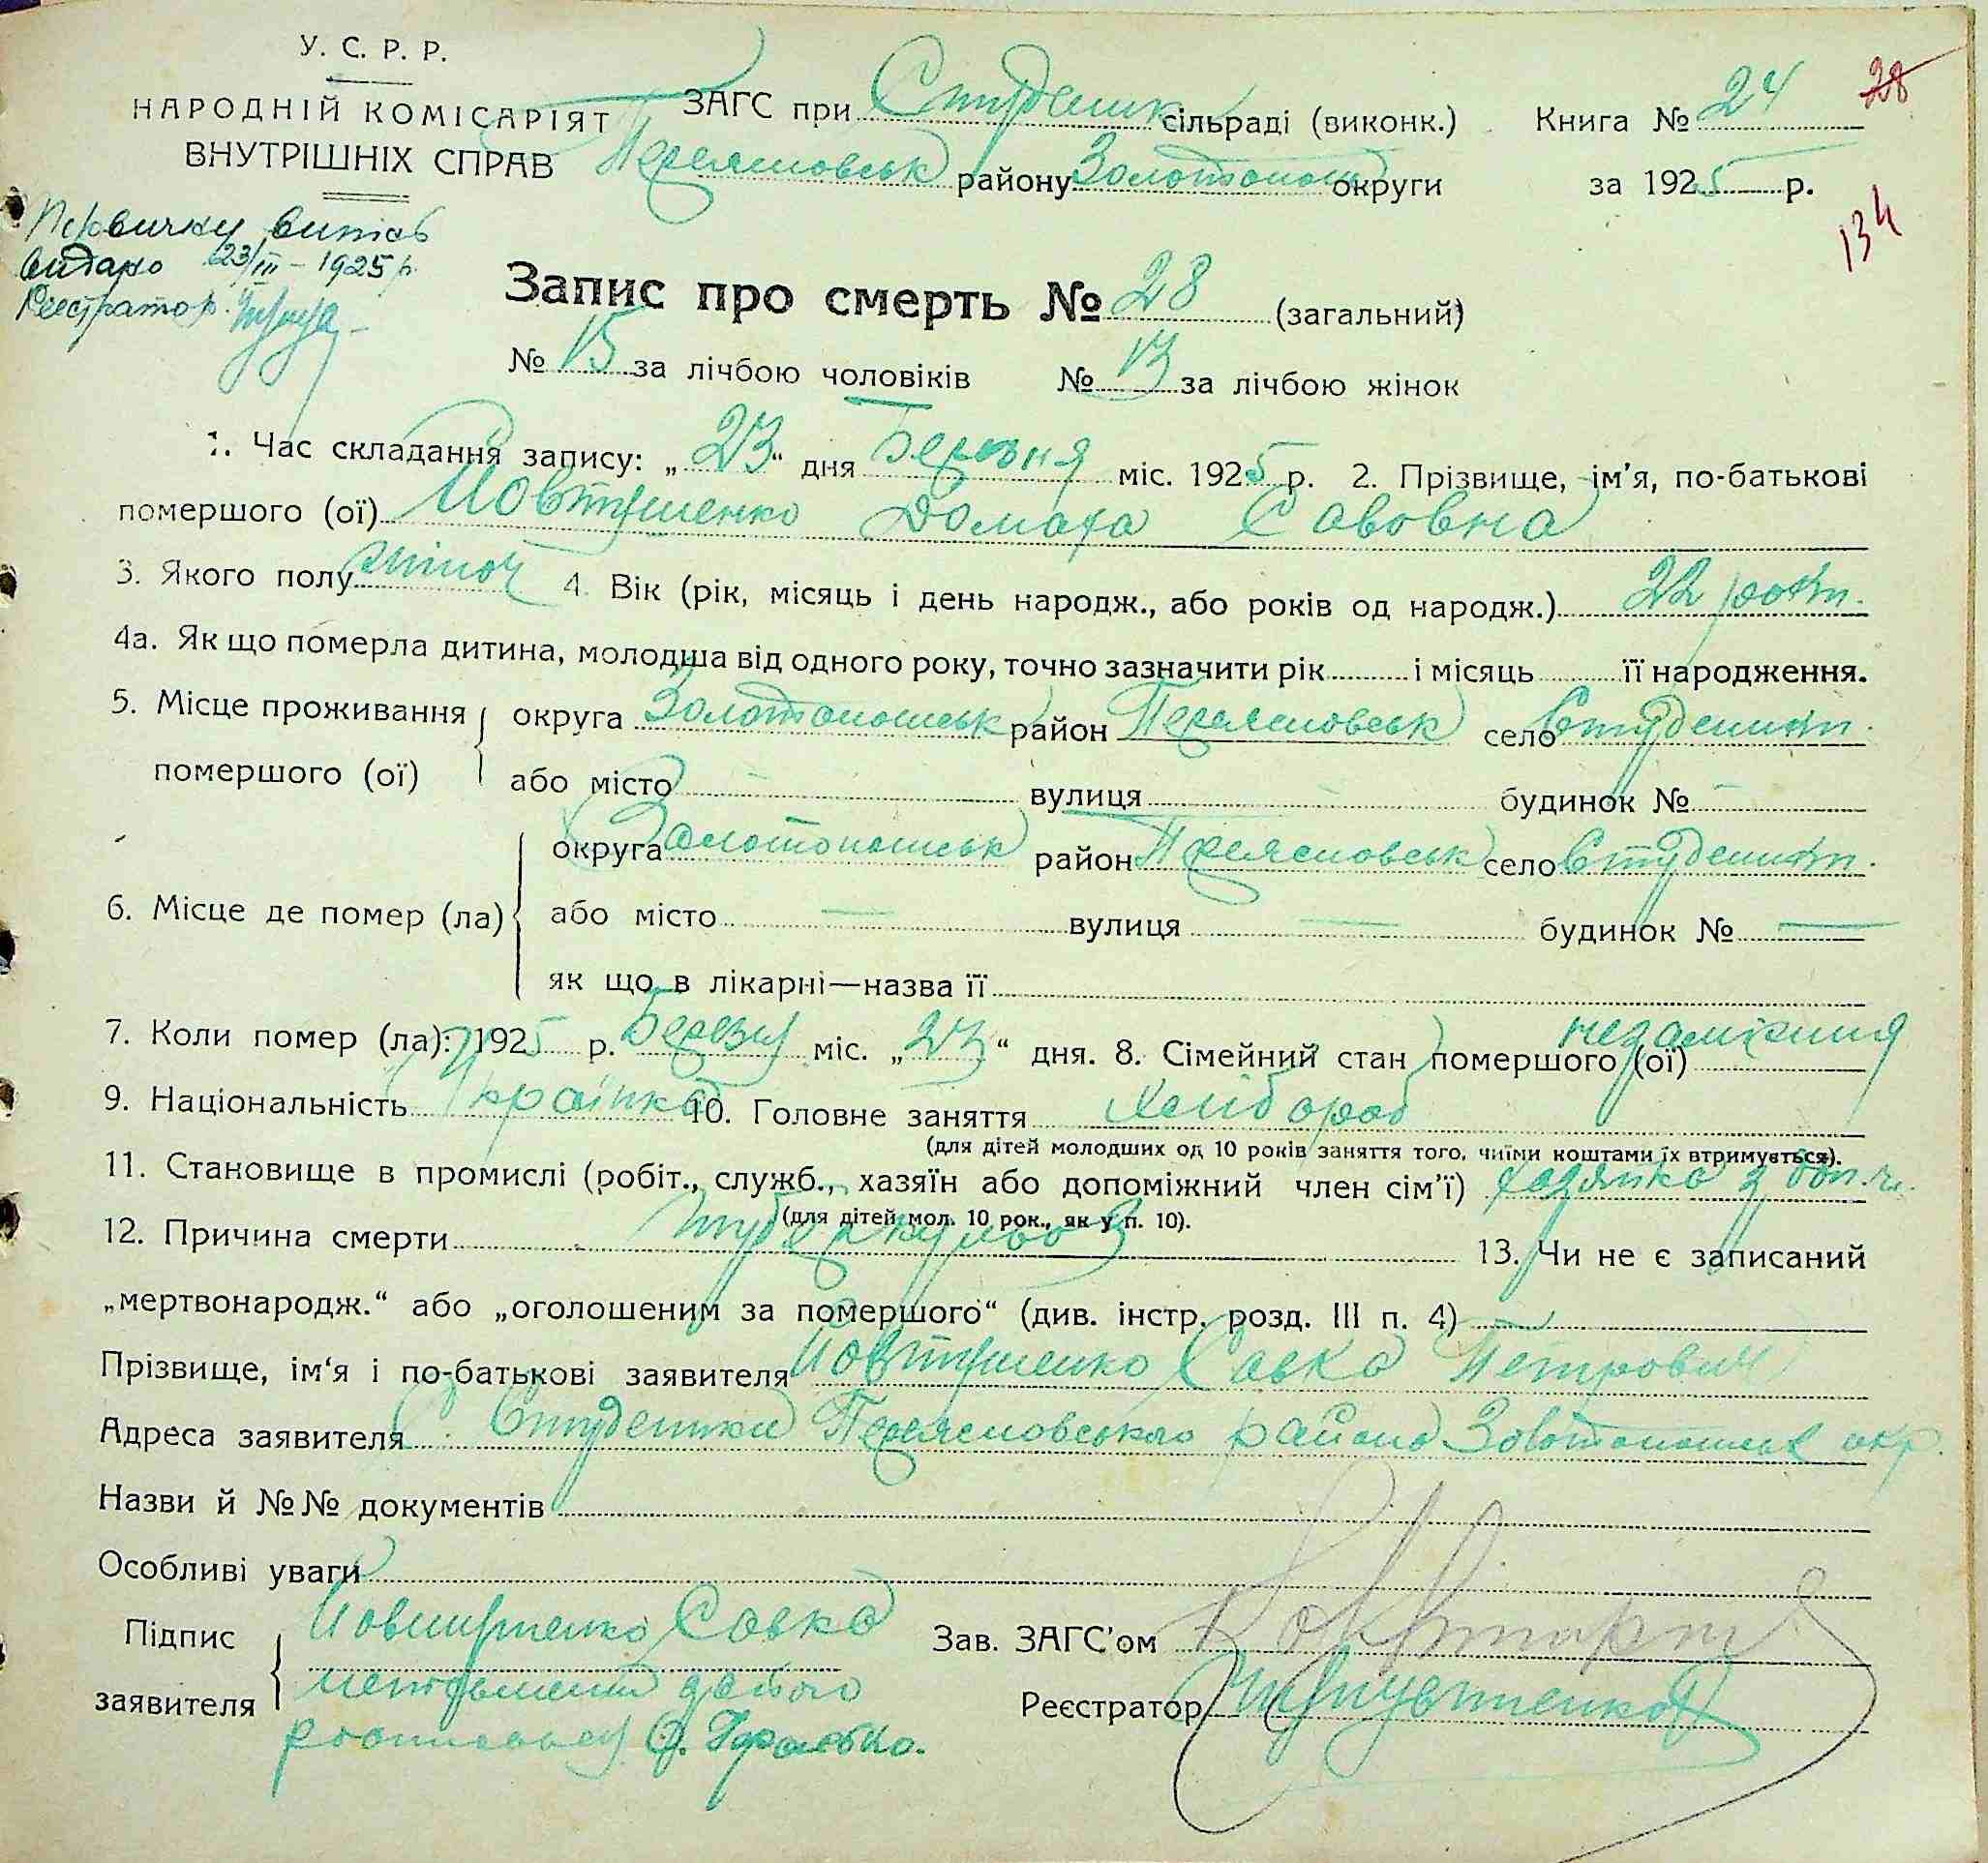 У. С. Р. Р.
НАРОДНІЙ КОМІСАРІЯТ
ВНУТРІШНІХ СПРАВ
ЗАГС при Студеник сільраді (виконк.)
Переясловськ району Золотонош округи
Книга № 24 28
за 1925 р.
134
видано 23/III – 1925 р.
Реєстратор
Запис про смерть № 28 (загальний)
№ 15 за лічбою чоловіків № 13 за лічбою жінок
1. Час складання запису: „23“ дня Березня міс. 1925 р. 2. Прізвище, ім’я, по-батькові
помершого (ої) Йовтушенко Домаха Савовна
3. Якого полу жіноч 4. Вік (рік, місяць і день народж., або років од народж.) 22
4а. Як що померла дитина, молодша від одного року, точно зазначити рік і місяць її народження.
5. Місце проживання округа Золотоношськ район Переясловськ село
помершого (ої) або місто – вулиця – будинок № –
округа Золотоношськ район Переясловськ село
6. Місце де помер (ла) або місто — вулиця — будинок № —
як що в лікарні—назва її
7. Коли помер (ла): 1925 р. Березня міс. „23“ дня. 8. Сімейний стан помершого (ої) незаміжня
9. Національність Українка 10. Головне заняття хлібороб
(для дітей молодших од 10 років заняття того, чиїми коштами їх втримується).
11. Становище в промислі (робіт., служб., хазяїн або допоміжний член сім’ї)
(для дітей мол. 10 рок., як у п. 10).
12. Причина смерти туберкульоз 13. Чи не є записаний
„мертвонародж.“ або „оголошеним за помершого“ (див. інстр. розд. III п. 4) –
Прізвище, ім‘я і по-батькові заявителя Йовтушенко Савка Петрович
Адреса заявителя с. Студеники Переясловського району Золотоношськ окр.
Назви й №№ документів
Особливі уваги
Підпис Йовтушенко Савка
заявителя
Зав. ЗАГС’ом
Реєстратор